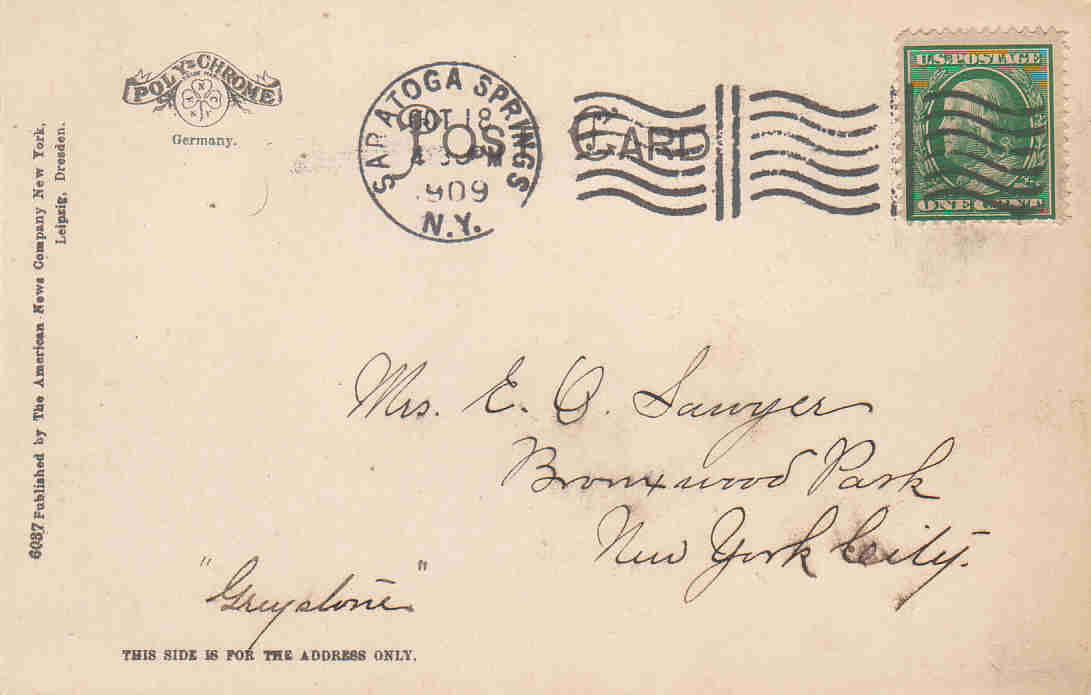 POLY-CHROME
Germany.
SARATOGA SPRINGS
OCT 18
1909
N.Y.
POST CARD
U.S. POSTAGE
ONE CENT
6037 Published by The American News Company New York,
Leipzig, Dresden.
Mrs. E. O. Sawyer
Bronxwood Park
New York City.
"Greystone"
THIS SIDE IS FOR THE ADDRESS ONLY.